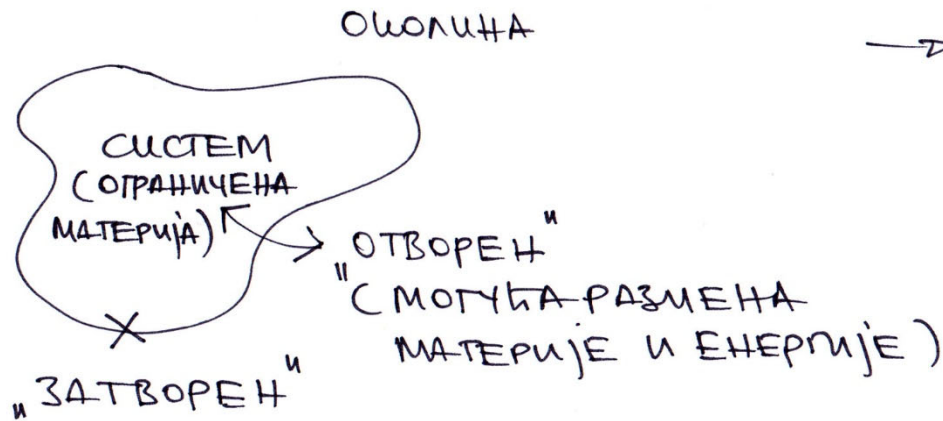 ОКОЛИНА
СИСТЕМ
(ОГРАНИЧЕНА
МАТЕРИЈА)
"ОТВОРЕН"
(МОГУЋА РАЗМЕНА
МАТЕРИЈЕ И ЕНЕРГИЈЕ)
„ЗАТВОРЕН"